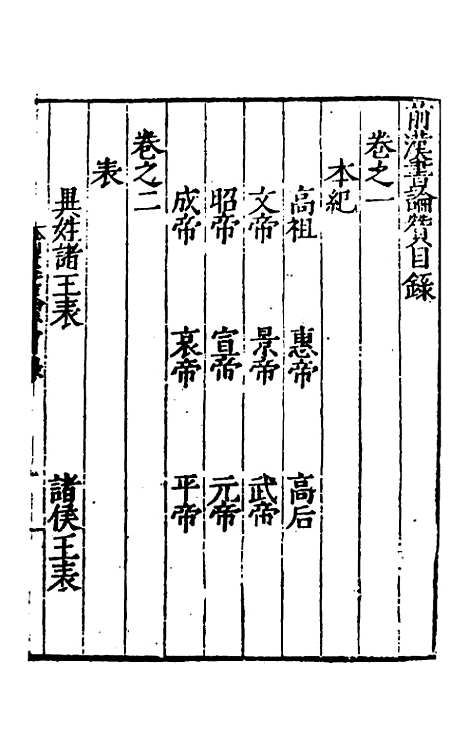 前漢書論贊目錄
卷之一
本紀
高祖　惠帝　高后
文帝　景帝　武帝
昭帝　宣帝　元帝
成帝　哀帝　平帝
卷之二
表
異姓諸王表　諸侯王表